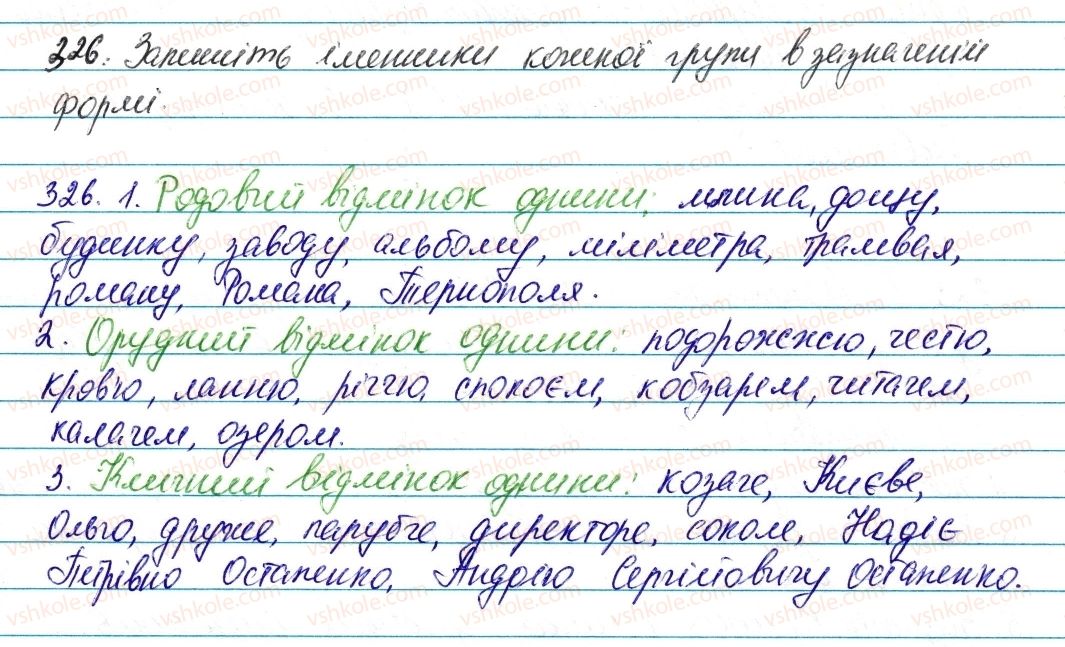 326. Запишіть іменники кожної групи в зазначеній
формі.
326. 1. Родовий відмінок однини: млина, дощу,
будинку, заводу, альбому, міліметра, трамвая,
роману, Романа, Тернополя.
2. Орудний відмінок однини: подорожжю, честю,
кров'ю, ланню, річчю, спокоєм, кобзарем, читачем,
калачем, озером.
3. Кличний відмінок однини: козаче, Києве,
Ольго, друже, парубче, директоре, соколе, Надіє
Петрівно Остапенко, Андрію Сергійовичу Остапенко.